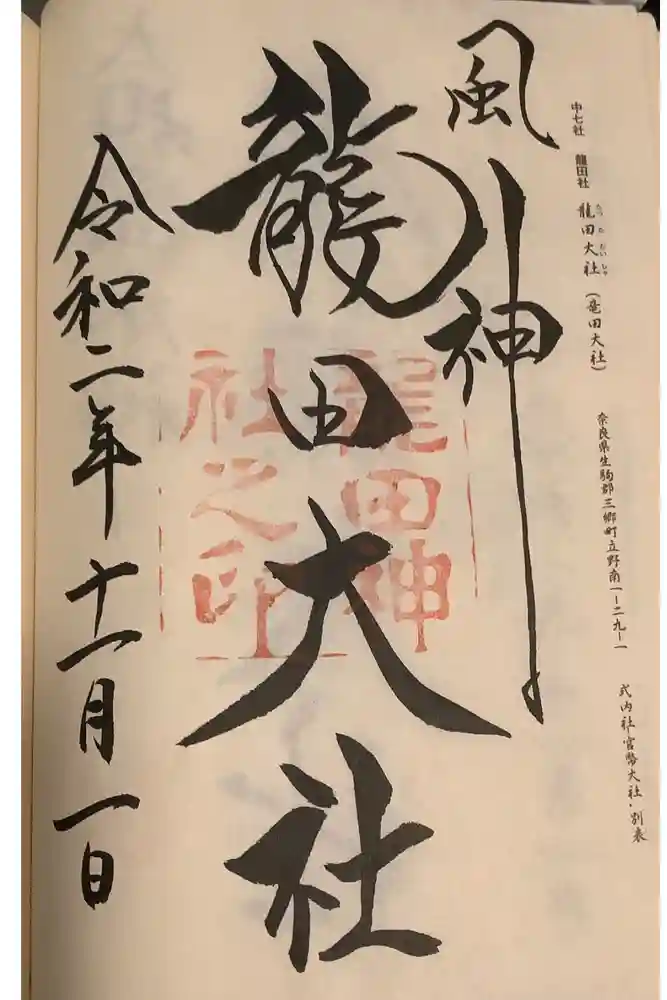 中七社 龍田社 龍田大社（竜田大社） 奈良県生駒郡三郷町立野南一ー二九ー一 式内社官幣大社・別表
たつたたいしゃ
風神
龍田大社
龍田神
社之印
令和二年十一月一日